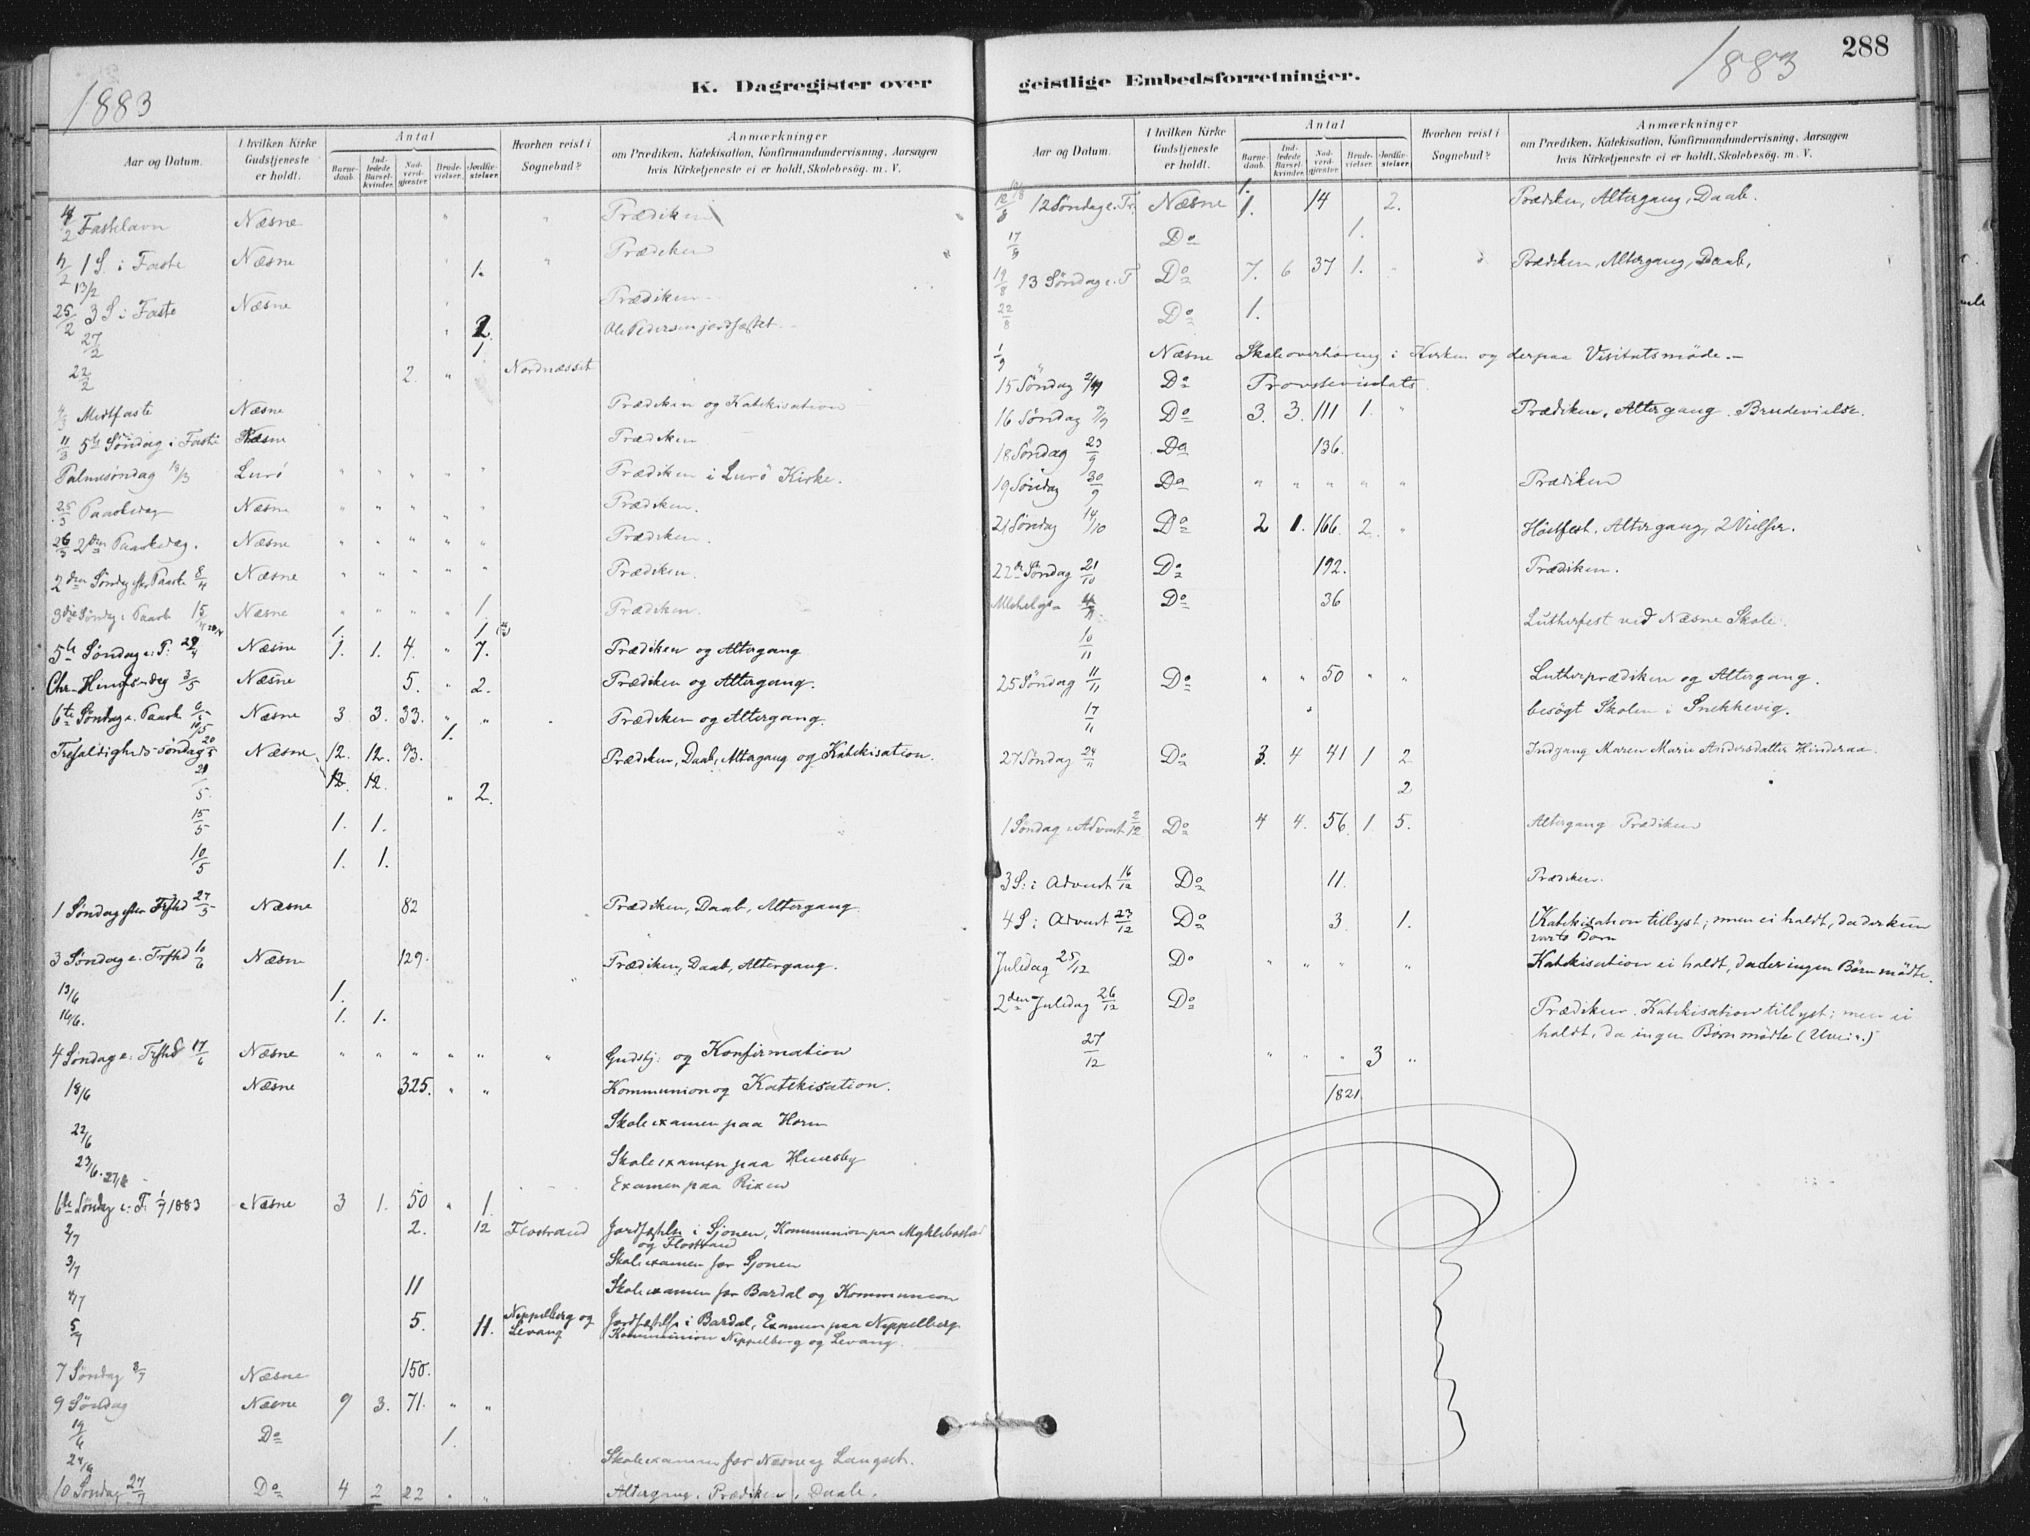 1883
K. Dagregister over
Aar og Datum.
I hvilken Kirke Gudstjeneste er holdt.
Antal
Barne-daab.
Ind-ledede Barsel-kvinder.
Nad-verd-gjester
Brude-vielser.
Jordfæ-stelser.
Hvorhen reist i Sognebud?
Anmærkninger
om Prædiken, Katekisation, Konfirmandundervisning, Aarsagen
hvis Kirketjeneste ei er holdt, Skolebesøg. m. V.
4/2 Fastelavn Næsne " " Prædiken
1 S. i Faste Næsne " Prædiken
13/2 1.
25/2 3 S. i Faste Næsne Prædiken
27/2 " 2. Ole Pedersen jordfæstet.
1
22/2 2. " Nordnæsset
4/3 Midtfaste Næsne Prædiken og Katekisation
11/3 5te Søndag i Faste Næsne Prædiken
Palmesøndag 18/3 Lurö " " " " " Prædiken i Lurö Kirke.
25/3 Paaskedag Næsne " " " " " Prædiken.
26/3 2den Paaskedag. Næsne " " " " " Prædiken.
2den Søndag efter Paaske 8/4 Næsne " " " " " Prædiken.
3die Søndag e. Paask 15/4 Næsne " " " " 1. Prædiken.
1. 1
5te Søndag e: P: 29/4 Næsne 1. 1. 4. " 7. Prædiken og Altergang
Chr. Himfs.dag 3/5 Næsne 5. " 2. Prædiken og Altergang.
6te Søndag e. Paask 6/5 Næsne 3. 3. 33. " " Prædiken og Altergang.
10/5 1.
Trefaldigheds-søndag 20/5 Næsne. 12. 12. 93. Prædiken, Daab, Altergang og Katekisation.
21/5. 12. 12. " 2.
15/5 1. 1.
10/5 1. 1.
1 Søndag efter Trfhd 27/5 Næsne 82 Prædiken, Daab, Altergang
3 Søndag e. Trfhd 10/6 Næsne 129. Prædiken, Daab, Altergang.
13/6 1.
16/6. 1. 1.
4 Søndag e: Trfhd 17/6 Næsne " " " " " " Gudstj: og Konfirmation
18/6 Næsne 325. " " Kommunion og Katekisation.
22/6 Skoleexamen paa Horn
23/6. Skoleexamen paa Husby
Examen paa Rixen
6te Søndag e: T: 1/7 1883 Næsne 3 1. 50 " 1.
2/7 2. 12 Flostrand Jordfæstelse i Sjonen, Kommunion paa Myklebostad
og Flostrand
3/7 Skoleexamen for Sjonen
4/7 11 Skoleexamen for Bardal og Kommunion
5/7 5. 11. Neppelberg og Levang Jordfæstelse i Bardal, Examen paa Neppelberg
Kommunion Neppelberg og Levang.
7 Søndag 8/7 Næsne 150.
9 Søndag Næsne 9 3. 71. " "
19/6 Do 1.
Skoleexamen for Næsne og Langset.
10 Søndag 27/7 Do 4 2 22 " " Altergang, Prædiken, Daab.
1883
288
geistlige Embedsforretninger.
Aar og Datum.
I hvilken Kirke Gudstjeneste er holdt.
Antal
Barne-daab.
Ind-ledede Barsel-kvinder.
Nad-verd-gjester
Brude-vielser.
Jordfæ-stelser.
Hvorhen reist i Sognebud?
Anmærkninger
om Prædiken, Katekisation, Konfirmandundervisning, Aarsagen
hvis Kirketjeneste ei er holdt, Skolebesøg. m. V.
1.
12/8 12 Søndag e. Tr. Næsne 1. 14 2. Prædiken, Altergang, Daab.
Do 1.
19/8 13 Søndag e. T Do 7. 6 37 1. " Prædiken, Altergang, Daab,
22/8 Do 1.
1/9 Næsne Skoleoverhøring i Kirken og derpaa Visitatsmøde.
15 Søndag Do Provstevisitats
16 Søndag 9/9 Do 3. 3. 111 1. " Prædiken, Altergang. Brudevielse.
18 Søndag 23/9 Do 136.
19 Søndag 30/9 Do " " " " " Prædiken
21 Søndag 14/10 Do 2 1. 166. 2. " Høstfest, Altergang, 2 Vielser.
22de Søndag 21/10 Do 192. Prædiken.
Allehelgs- Do 36
10/11 Lutherfest ved Næsne Skole.
25 Søndag 11/11 Do " " 50 " " Lutherprædiken og Altergang.
17/11 besøgt Skolen i Snekkevig.
27 Søndag 24/11 Do 3. 4 41 1 2. Indgang Maren Marie Andersdatter Hinderaa.
2
1 Søndag i Advent 2/12 Do 4 4. 56. 1. 5. Altergang Prædiken
3 S: i Advent 16/12 Do 11. Prædiken.
4 S: i Advent 23/12 Do 3. 1. Katekisation tillyst; men ei haldt, da der kun
Börn
Juledag 25/12 Do " " " " Katekisation ei haldt, da der ingen Børn mødte.
2den Juledag 26/12 Do Prædiken. Katekisation tillyst; men ei
haldt, da ingen Børn mødte
27/12 " " " 3 "
1821.